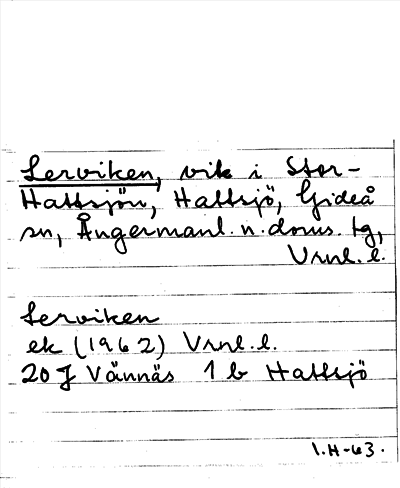 Lerviken, vik i Stor-
Hattsjön, Hattsjö, Gideå
sn, Ångermanl. n. doms. tg,
Vrnl. l.
Lerviken
ek (1962) Vrnl. l.
20 J Vännäs 1 b Hattsjö
I.H-63.